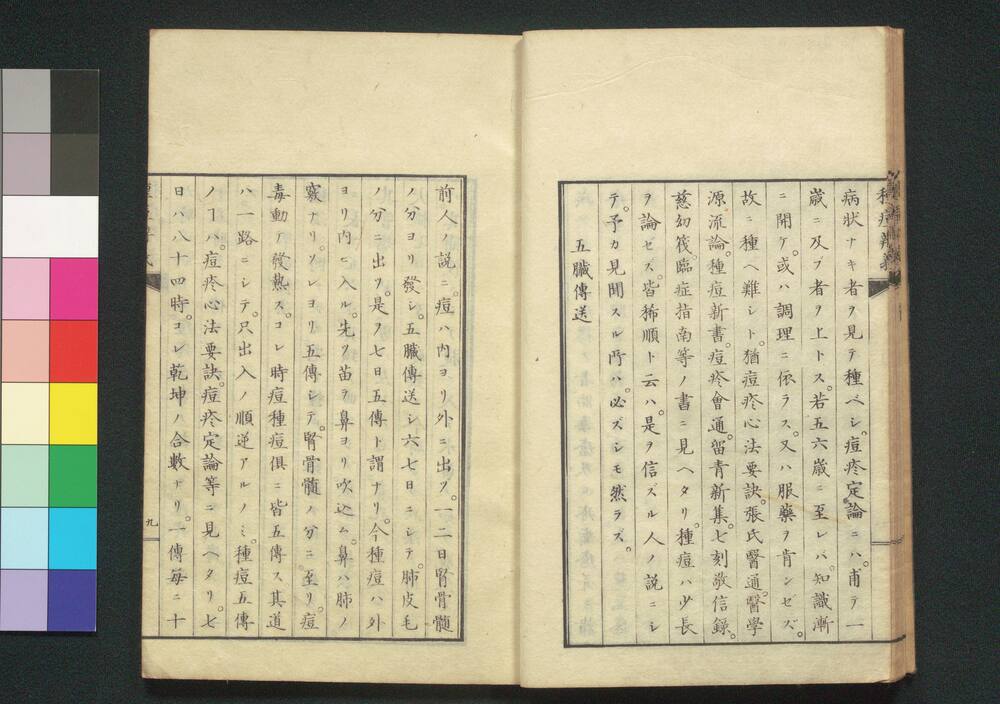 病状ナキ者ヲ見テ種ベシ。痘疹定論ニハ。甫テ一
歳ニ及ブ者ヲ上トス。若五六歳ニ至レバ。知識漸
ニ開ケ。或ハ調理ニ依ラス。又ハ服藥ヲ肯ンゼズ。
故ニ種ヘ難シト。猶痘疹心法要訣。張氏醫通。醫學
源流論。種痘新書。痘疹會通。留青新集。七刻敬信録。
慈幼筏。臨症指南等ノ書ニ見ヘタリ。種痘ハ少長
ヲ論ゼズ。皆稀順ト云ハ。是ヲ信ズル人ノ説ニシ
テ。予カ見聞スル所ハ。必ズシモ然ラズ。
五臓傳送
前人ノ説ニ。痘ハ内ヨリ外ニ出ヅ。一二日腎骨髓
ノ分ヨリ發シ。五臓傳送シ六七日ニシテ。肺皮毛
ノ分ニ出ヅ。是ヲ七日五傳ト謂ナリ。今種痘ハ外
ヨリ内ニ入ル。先ヅ苗ヲ鼻ヨリ吹込ム。鼻ハ肺ノ
竅ナリ。ソレヨリ五傳シテ。腎骨髓ノ分ニ。至リ。痘
毒動テ發熱ス。コレ時痘種痘俱ニ皆五傳ス其道
ハ一路ニシテ。只出入ノ順逆アルノミ。種痘五傳
ノヿハ。痘疹心法要訣。痘疹定論等ニ見ヘタリ。七
日ハ八十四時。コレ乾坤ノ合數ナリ。一傳毎ニ十
九